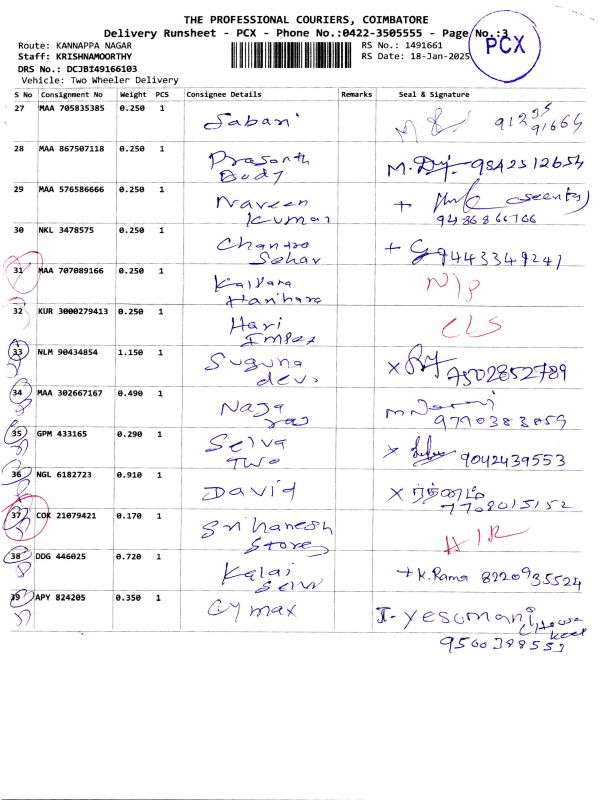 THE PROFESSIONAL COURIERS, COIMBATORE
Delivery Runsheet - PCX - Phone No.:0422-3505555 - Page No.:3
PCX
Route: KANNAPPA NAGAR
RS No.: 1491661
Staff: KRISHNAMOORTHY
RS Date: 18-Jan-2025
DRS No.: DCJBI49166103
Vehicle: Two Wheeler Delivery
S No Consignment No Weight PCS Consignee Details Remarks Seal & Signature
27 MAA 705835385 0.250 1 Sabari
28 MAA 867507118 0.250 1 Prasanth
Body
M. 9842512654
29 MAA 576586666 0.250 1 Naveen
Kumar
+
30 NKL 3478575 0.250 1 Chandra
Sekar
+ G 9443349241
31 MAA 707089166 0.250 1 Kalpana
Harihara
N/P
32 KUR 3000279413 0.250 1 Hari
Impex
CLS
33 NLM 90434854 1.150 1 Suguna
devi
X 7502852789
34 MAA 302667167 0.490 1 Naga
raj
9790383859
35 GPM 433165 0.290 1 Selva
Two
X 9042439553
36 NGL 6182723 0.910 1 David
X
7708015152
37 COK 21079421 0.170 1 Sri hanesh
Stores
H/R
38 DDG 446025 0.720 1 Kalai
Selvi
+ K. Rama 8220935524
39 APY 824205 0.350 1 Cymax
I- Yesumani
(House
keep
9500388553